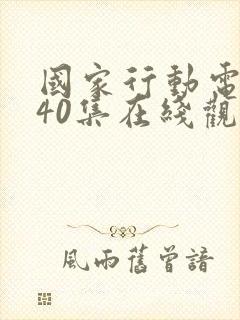 國家行動電
40集在綫觀
風雨舊曾諳